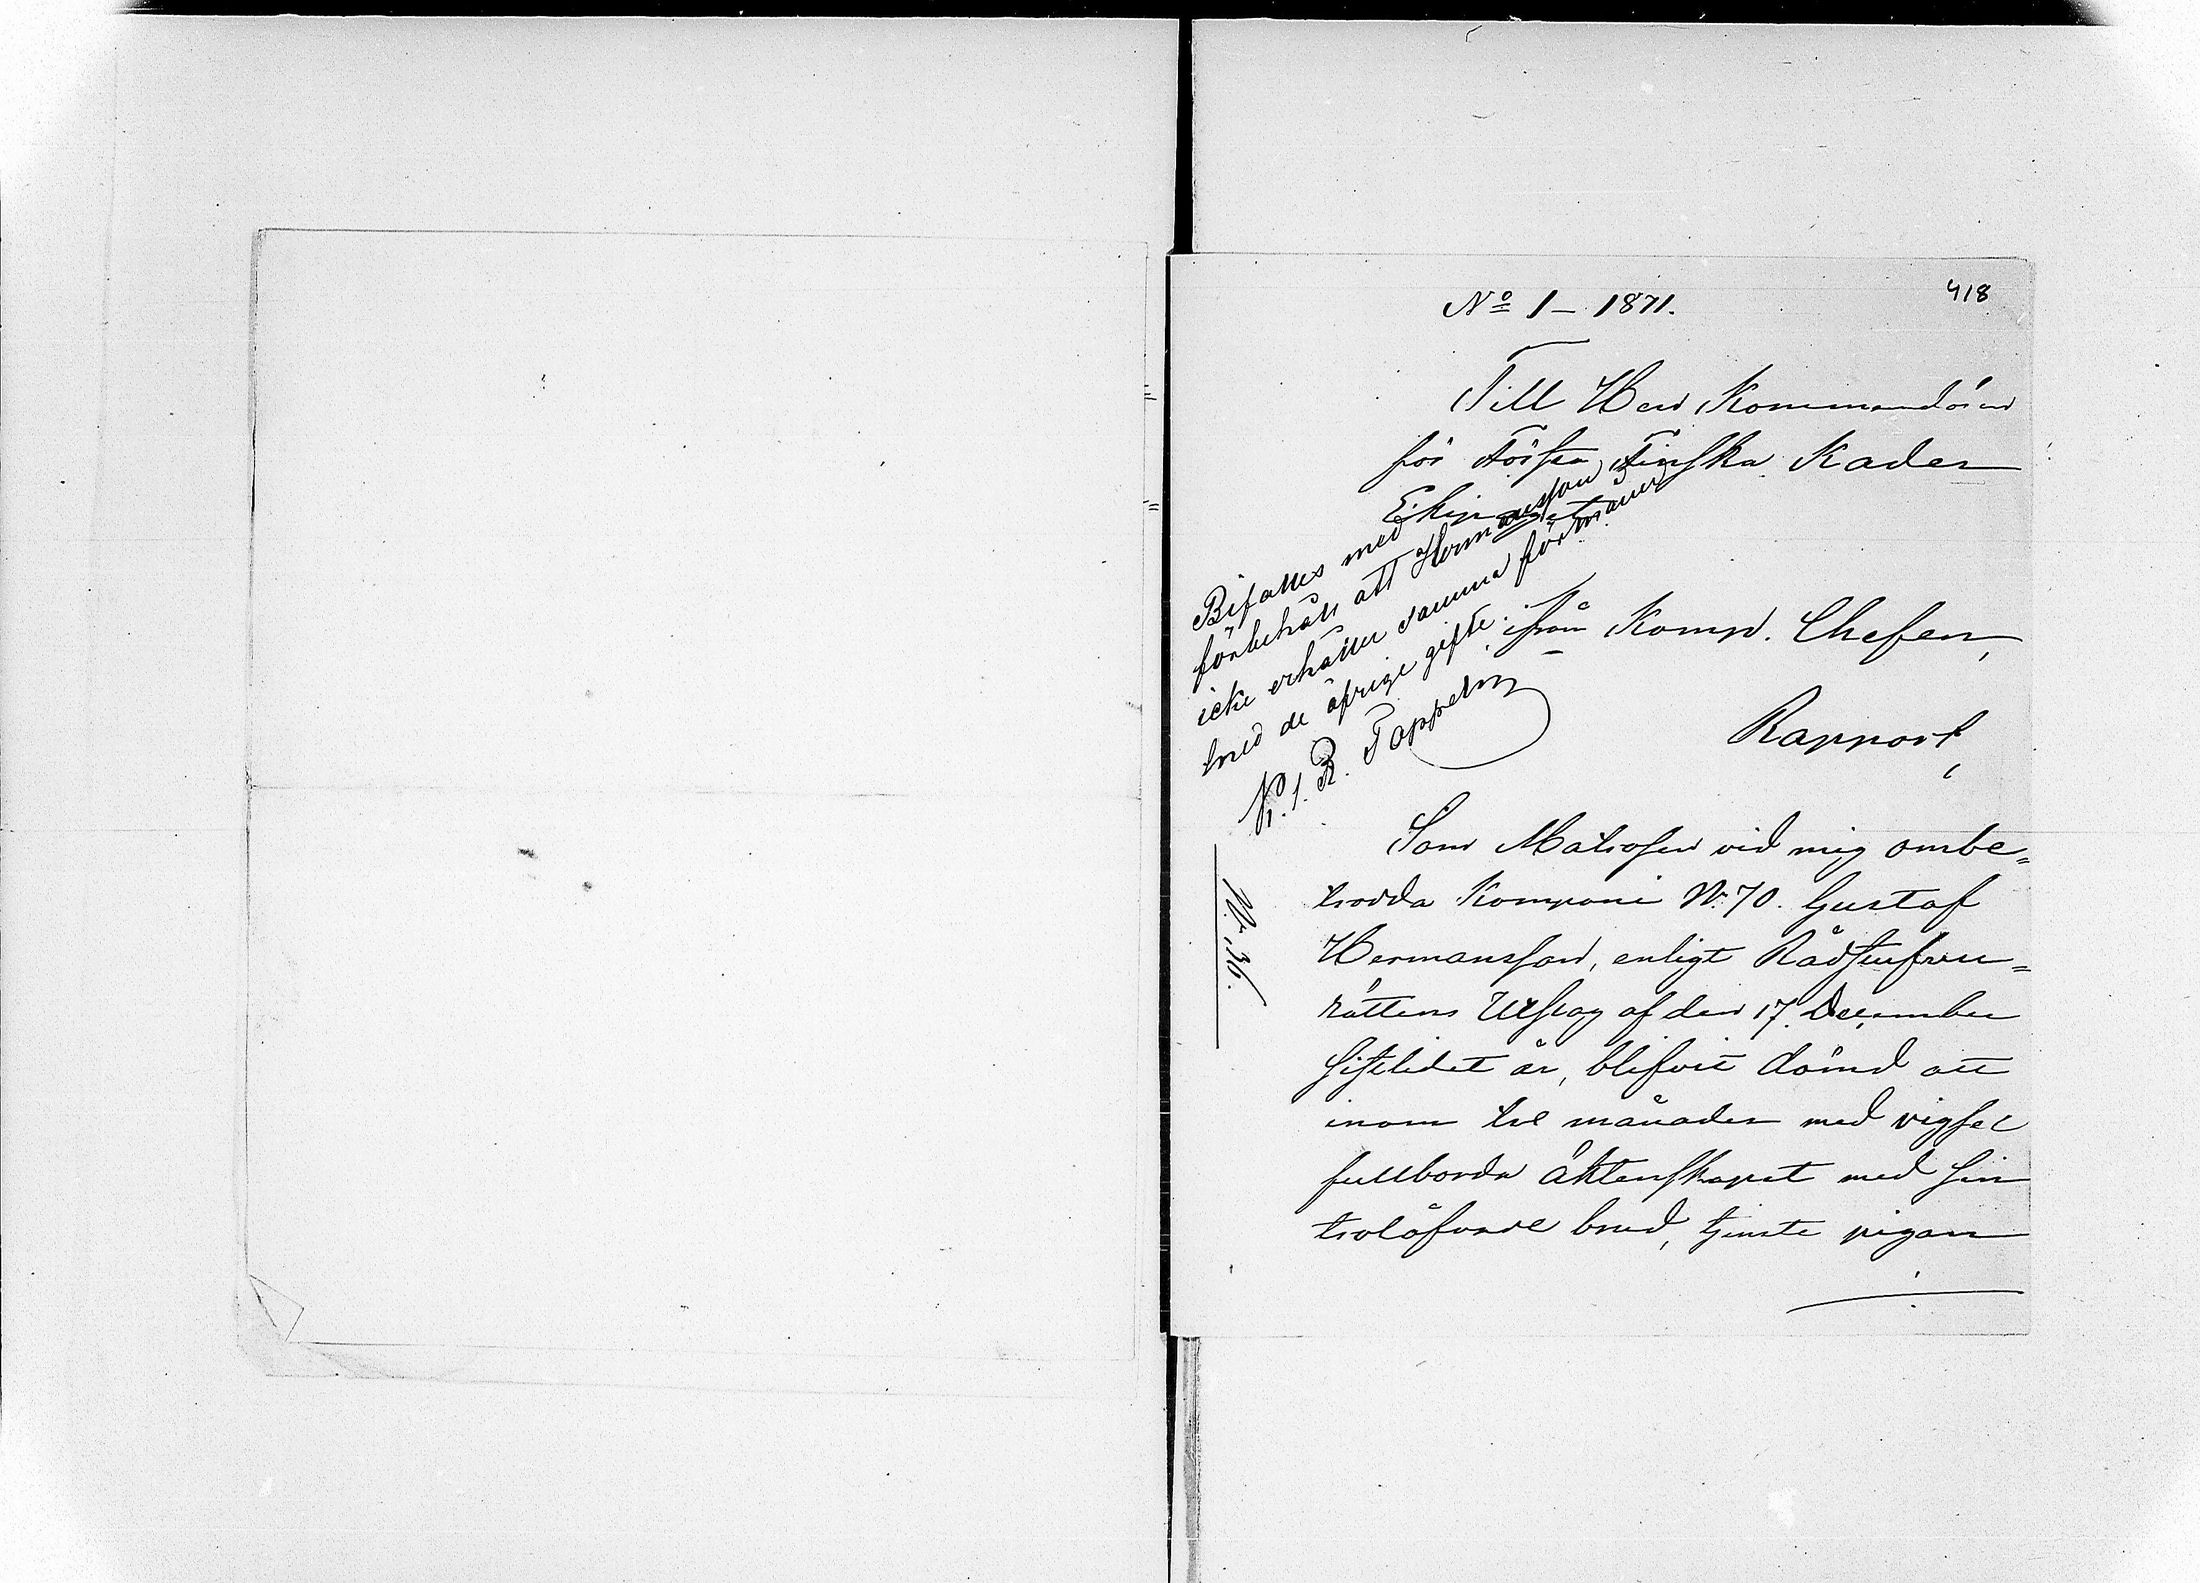 418
No 1 – 1871.
Till Herr Kommendören
för Första Finska Kader
Ekipaget
ifrån Komp. Chefen,
Rapport,
Bifalles med
förbehåll att Hermansson
icke erhåller samma förmåner
med de öfrige gifte.
No 1. R. Poppelm
No 36.
Som Matrosen vid mig ombe=
trodda Kompani No 70. Gustaf
Hermansson, enligt Rådstufvu=
rättens Utslag af den 17. December
sistledet år, blifvit dömd att
inom tre månader med vigsel
fullborda äktenskapet med sin
trolofvade brud, tjenste pigan